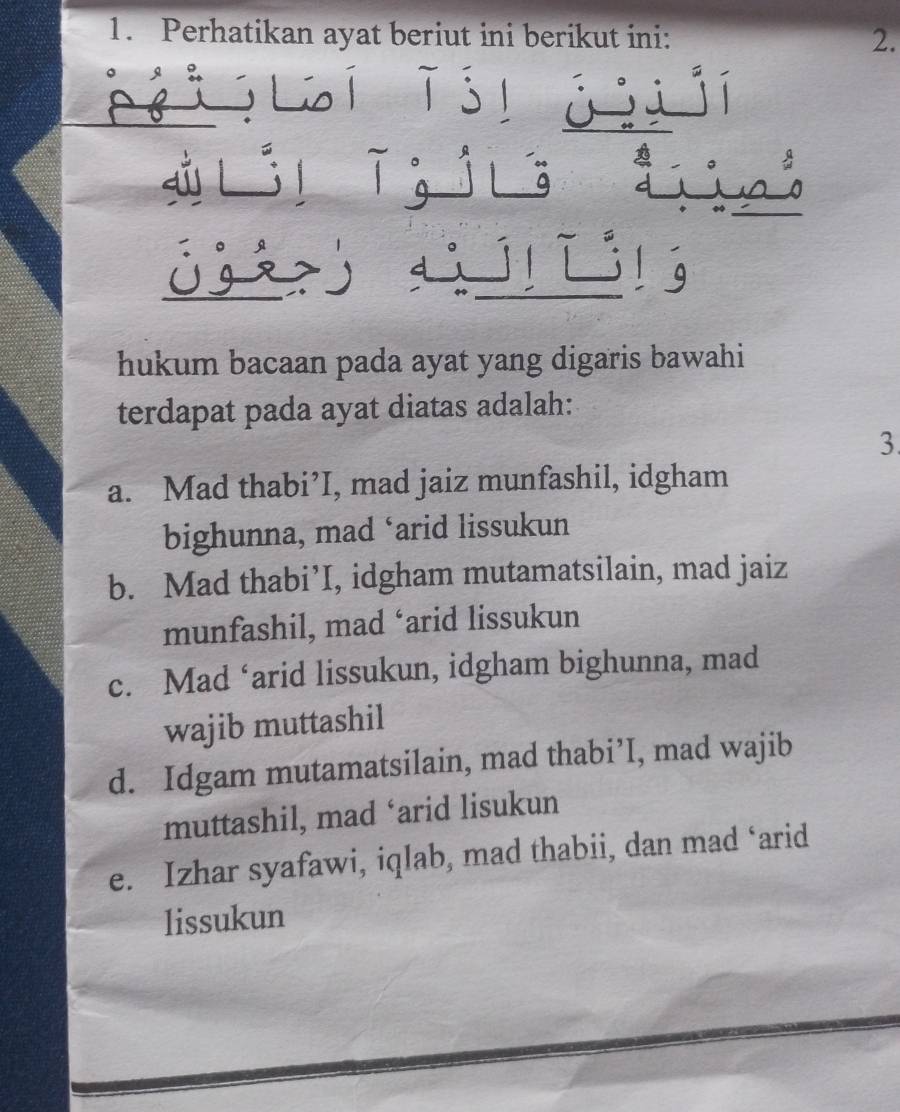 1. Perhatikan ayat beriut ini berikut ini:
2.
اَلَّذِيْنَ اِذَآ اَصَابَتْهُمْ
مُّصِيْبَةٌ ۗ قَالُوْٓا اِنَّا لِلّٰهِ
وَاِنَّآ اِلَيْهِ رٰجِعُوْنَ
hukum bacaan pada ayat yang digaris bawahi
terdapat pada ayat diatas adalah:
3.
a. Mad thabi’I, mad jaiz munfashil, idgham
bighunna, mad ‘arid lissukun
b. Mad thabi’I, idgham mutamatsilain, mad jaiz
munfashil, mad ‘arid lissukun
c. Mad ‘arid lissukun, idgham bighunna, mad
wajib muttashil
d. Idgam mutamatsilain, mad thabi’I, mad wajib
muttashil, mad ‘arid lisukun
e. Izhar syafawi, iqlab, mad thabii, dan mad ‘arid
lissukun